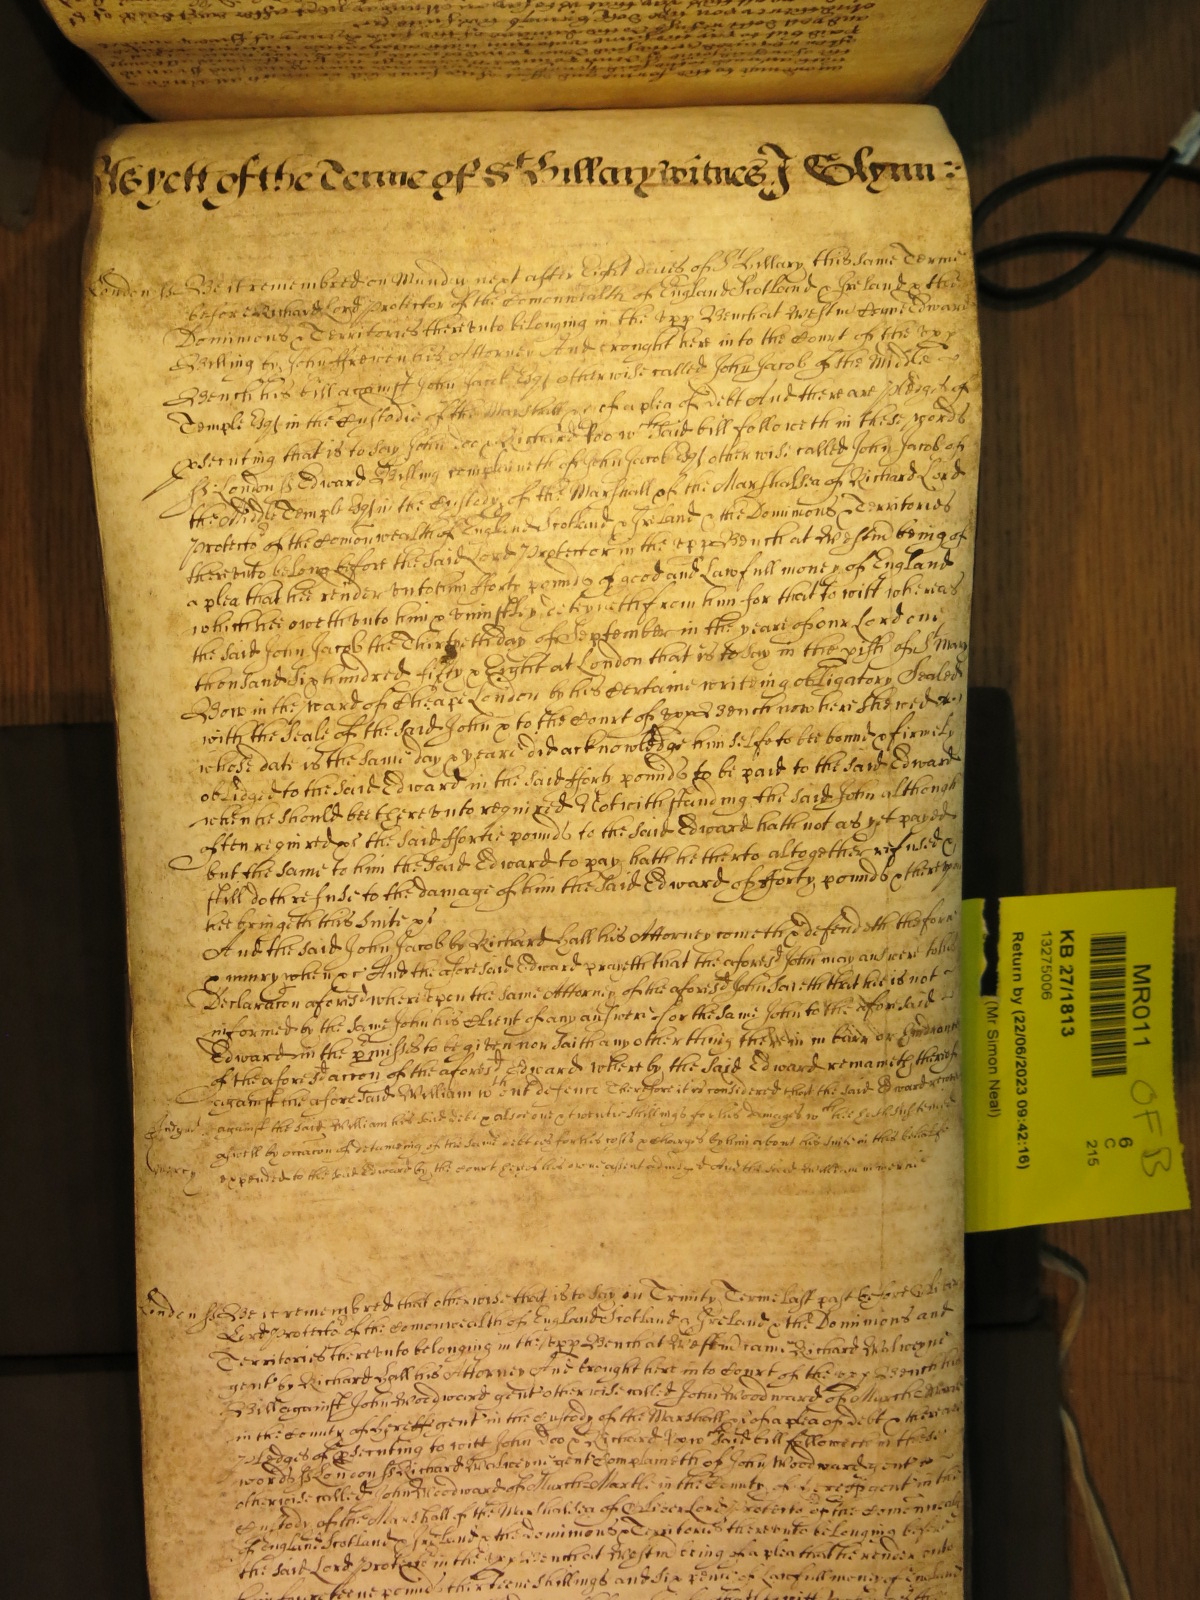 As yett of the Terme of St Hillary witnes J Glynn
London ss Be it remembred on Munday next after Eight daies of St Hillary this same Terme
before Richard Lord Protector of the Comonwealth of England Scotland & Ireland & the
Dominions & Territories thereunto belonging in the upp Bench at Westm Came Edward
Billing by John ffrewen his Attorney And brought here into the Court of the upp
Bench his bill against John Jacob Esqr otherwise called John Jacob of the Middle
Temple Esqr in the Custodie of the Marshall &c of a plea of Debt And there are pledges of
psecuting that is to say John Doo & Richard Roo wch said bill followeth in these words
ss London ss Edward Billing complaineth of John Jacob Esqr otherwise called John Jacob of
the Middle Temple Esqr in the Custody of the Marshall of the Marshalsea of Richard Lord
Protector of the Comonwealth of England Scotland & Ireland & the Dominions & Territories
thereunto belong before the said Lord Protector in the upp Bench at Westm being of
a plea that hee render unto him fforty pounds of good and Lawfull money of England
which hee oweth unto him & uniustly deteyneth from him for that to witt whereas
the said John Jacob the Thirtieth day of September in the yeare of our Lord one
thousand Six hundred fifty & Eight at London that is to say in the pish of St Mary
Bow in the ward of Cheape London by his Certaine writeing obligatory Sealed
with the Seale of the said John & to the Court of upp Bench now here shewed
whose date is the same day & yeare did acknowledge himselfe to bee bound & firmely
obliedged to the said Edward in the said fforty pounds to be paid to the said Edward
when he should bee thereunto required Notwithstanding the said John although
often required &c the said ffortie pounds to the said Edward hath not as yet payed
but the same to him the said Edward to pay hath hetherto altogether refused &
still doth refuse to the damage of him the said Edward of fforty pounds & thereupon
hee bringeth this suite &c
And the said John Jacob by Richard Hall his Attorney cometh & defendeth the force
& iniury when &c And the aforesaid Edward prayeth that the aforesd John may answere to his
Declaracon aforesd whereupon the same Attorney of the aforesd John saveth that hee is not
informed by the same John his Client of any answere for the same John to the aforesaid
Edward in the pmisses to be given nor saith any other thing therein in barr or
of the aforesd accon of the aforesd Edward whereby the said Edward remaineth thereof
against the aforesaid William wthout defence Therefore it is considered that the said Edward recover
Judgmt against the said William his said debt & alsoe one & twentie shillings for his damages wch hee hath susteined
aswell by occacon of deteineing of the same debt as for his costs & charges by him about his suite in this behalfe
mercy expended to the said Edward by the Court here of his owne assent adiudged And the said William in mercie
London ss Be it remembred that otherwise that is to say in Trinity Terme last past before Oliver
Lord Protector of the Comonwealth of England Scotland & Ireland & the Dominions and
Territories thereunto belonging in the upp Bench at Westm came Richard Walweyne
gent by Richard Hall his Attorney And brought here into Court of the upp Bench his
Bill against John Woodward gent otherwise called John Woodward of Murch Marcle
in the County of Hereff gent in the Custody of the Marshall &c of a plea of debt & there are
Pledges of psecuting to witt John Doo & Richard Roo wch said bill followeth in these
words ss London ss Richard Walweyne gent Complaineth of John Woodward gent
otherwise called John Woodward of Murch Marcle in the County of Hereff gent in the
Custody of the Marshall of the Marshalsea of Oliver Lord Protector of the Comonwealth
of England Scotland & Ireland & the dominions & Territories thereunto belonging before
the said Lord Protector in the upp Bench at Westm being of a plea that he render unto
him fourteene pounds thirteene shillings and six pence of Lawfull money of England
MR011
KB 27/1813
13275006
(M. Simon Neal)
Return by (22/06/2023 09:42:16)
6
C
215
OFB